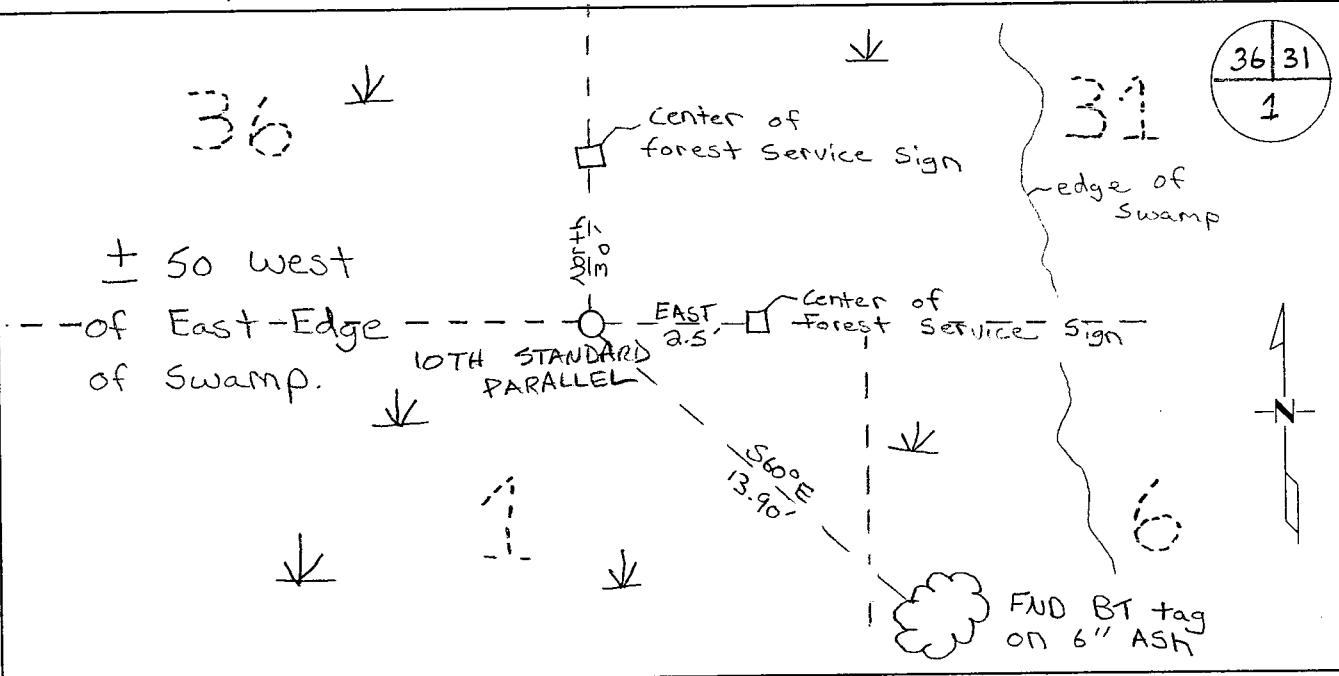 36
31
36 31
1
Center of
forest Service Sign
edge of
Swamp
± 50 west
of East-Edge
of Swamp.
EAST
2.5'
Center of
Forest Service Sign
10TH STANDARD
PARALLEL
N
S60°E
13.90'
1
6
FND BT tag
on 6" ASH